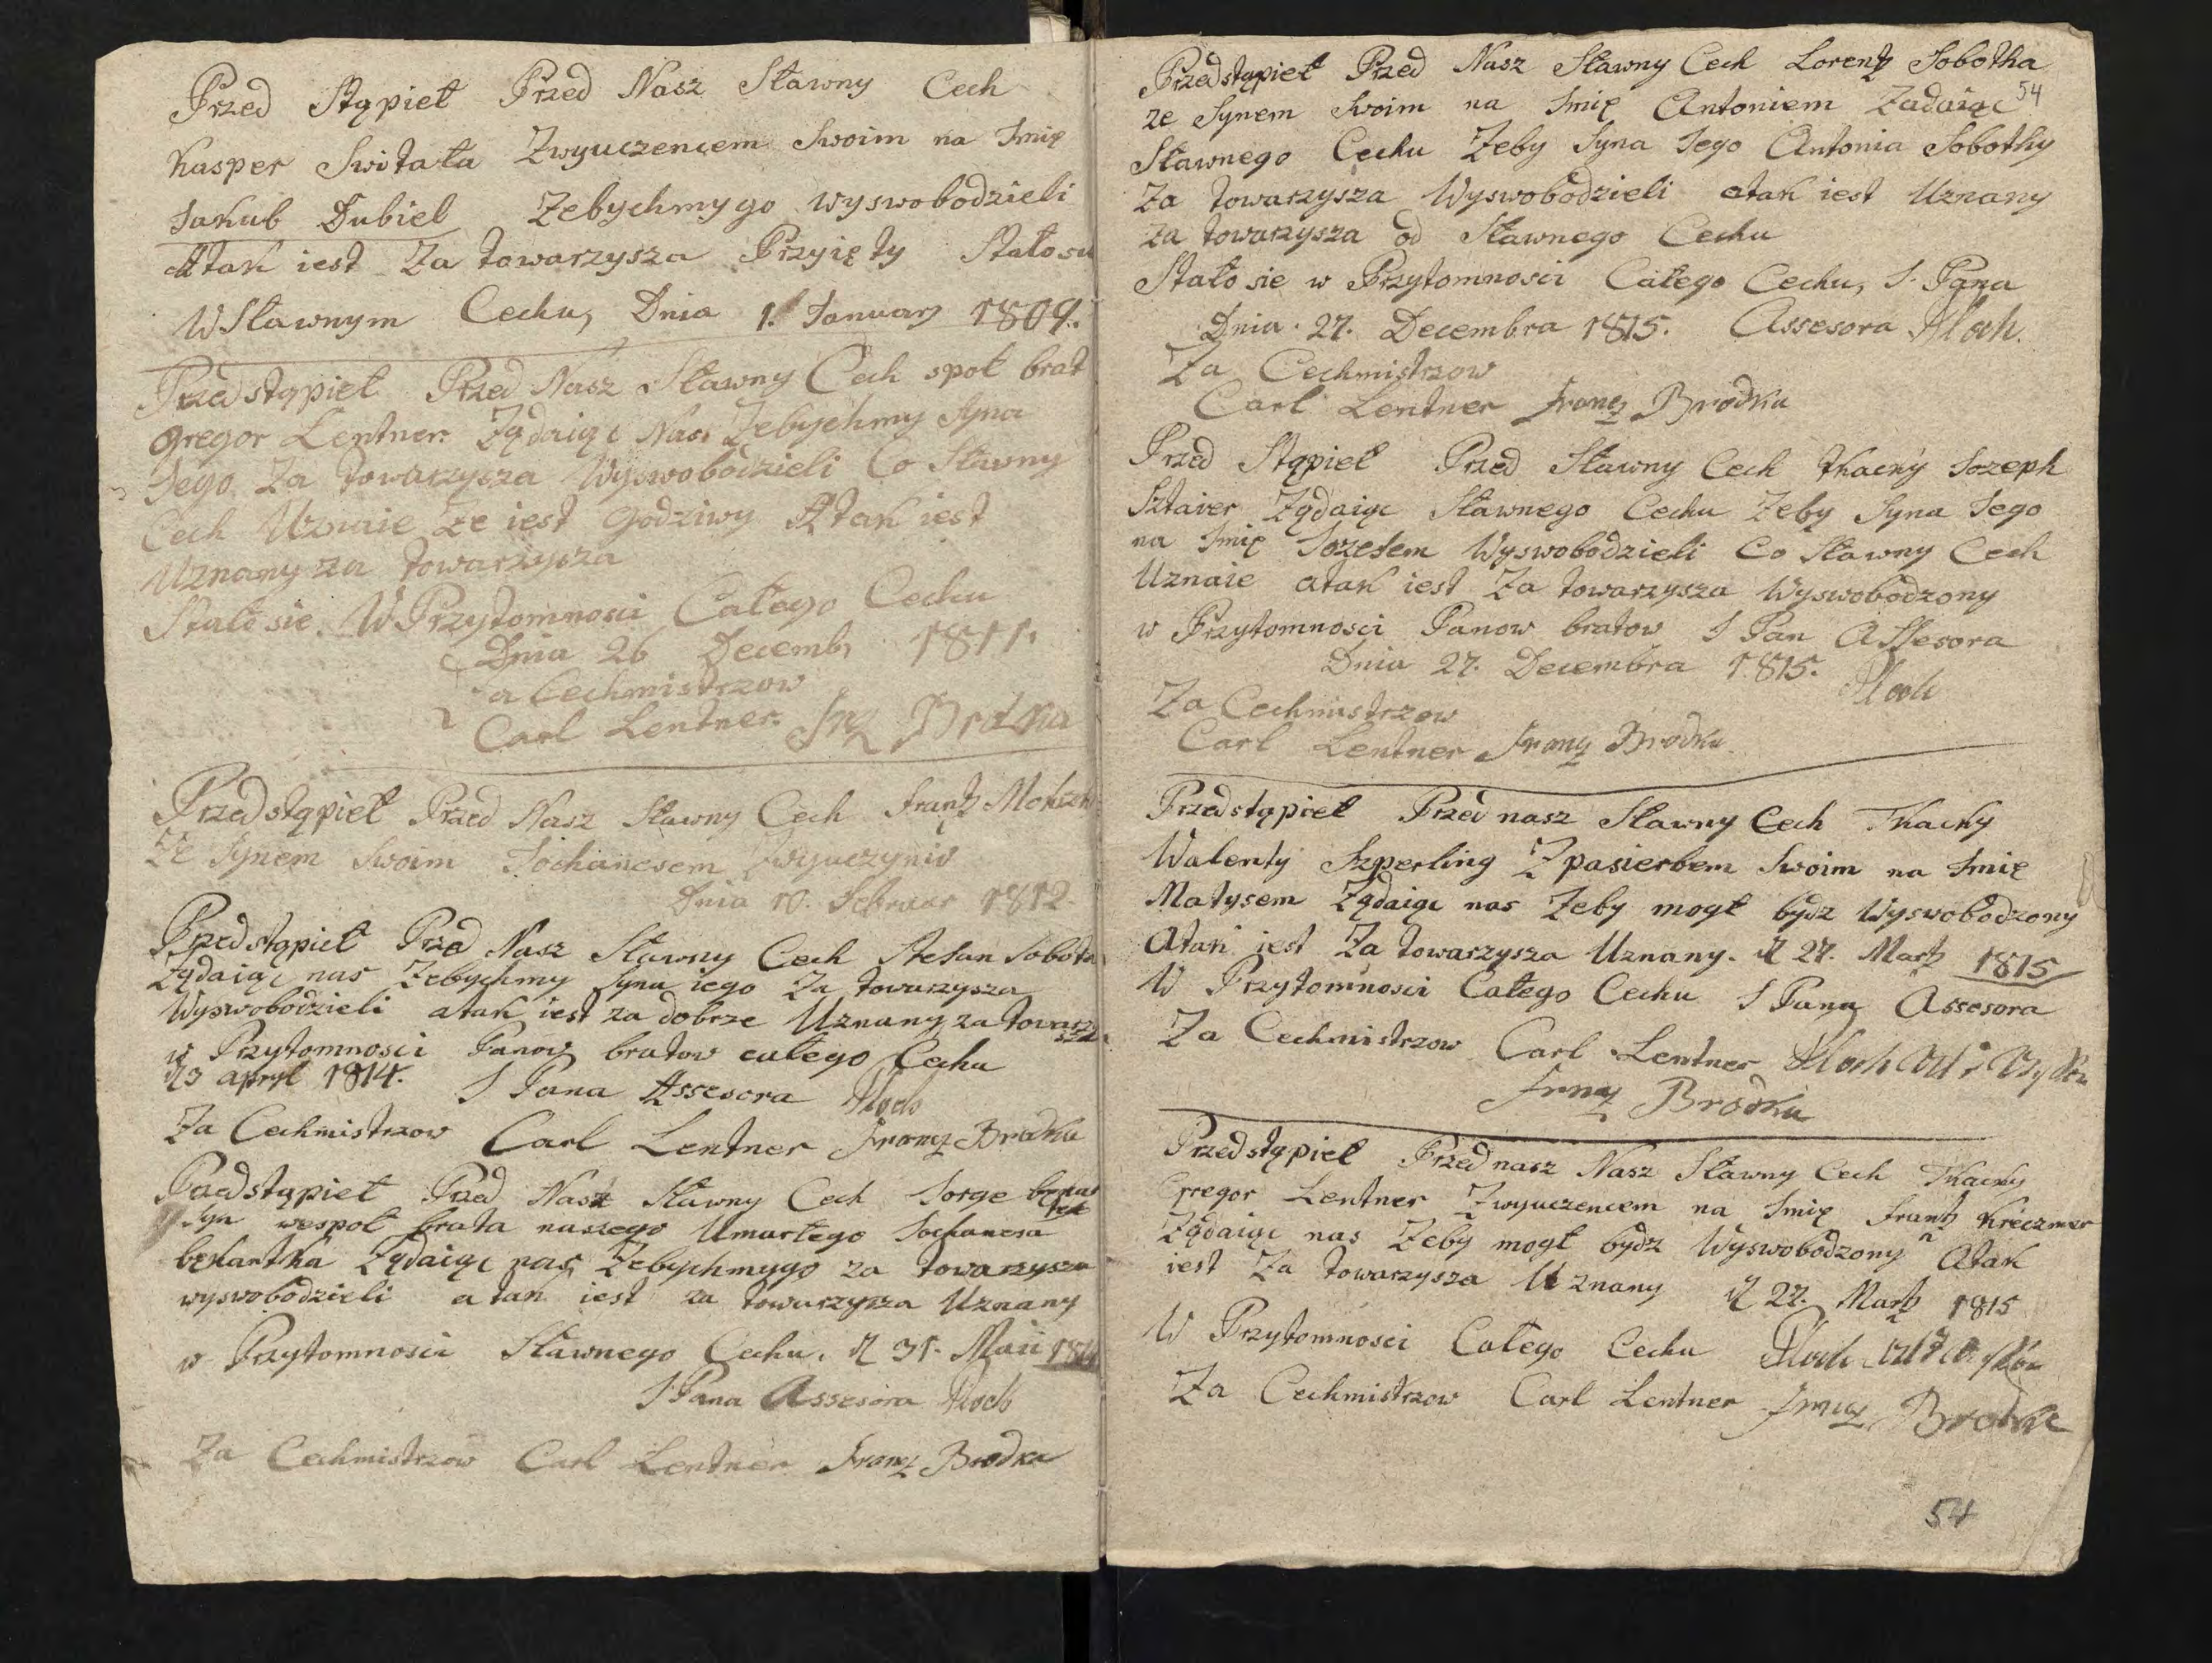 Przed Stąpieł Przed Nasz Sławny Cech
Kasper Switała Zwyuczencem Swoim na Imię
Jakub Dubiel Zebychmygo wyswobodzieli
Atak iest Za towarzysza Przyięty Stałosie
WSławnym Cechu, Dnia 1. Januarÿ 1809.
Przedstąpieł Przed Nasz Sławny Cech społ brat
Gregor Lentner Ządaiąc Nas Zebychmy Syna
Jego Za towarzysza Wyswobodzieli Co Sławny
Cech Uznaie ze iest Godziwy Atak iest
Uznany za towarzysza
Stało sie W Przytomnosci Całego Cechu
Dnia 26 Decemb, 1811.
a Cechmistrzow
Carl Lentner Frz Brodka
Przedstąpieł Przed Nasz Sławny Cech Frantz
Ze Synem Swoim Jochanesem
Dnia 10. Februar 1812.
Przedstąpieł Przed Nasz Sławny Cech Stefan Sobota
Ządaiąc nas Zebychmy Syna iego Za towarzysza
Wyswobodzieli atak iest za dobrze Uznany za towarzysza
w Przytomnosci Panow bratow całego Cechu
d 3 apryl 1814. I Pana Assesora Ploch
Za Cechmistrzow Carl Lentner Franz Brodka
Przedstąpieł Przed Nasz Sławny Cech Jorge
Syn wespoł brata naszego Umarłego Jochanesa
bekartka Ządaiąc nas, Zebychmygo za towarzysza
wyswobodzieli atak iest za towarzysza Uznany
w Przytomnosci Sławnego Cechu. d 31. Maii 1814
I Pana Assesora Ploch
Za Cechmistrzow Carl Lentner Franz Brodka
Przedstąpieł Przed Nasz Sławny Cech Lorentz Sobotha
54
ze Synem Swoim na Imię Antoniem Ządaiąc
Sławnego Cechu Zeby Syna Jego Antonia Sobothy
Za towarzysza Wyswobodzieli atak iest Uznany
za towarzysza od Sławnego Cechu
Stało sie w Przytomnosci Całego Cechu, I. Pana
Dnia 27. Decembra 1815. Assesora Ploch.
Za Cechmistrzow
Carl Lentner Franz Brodka
Przed Stąpieł Przed Sławny Cech tkacky Jozeph
Sztaier Ządaiąc Sławnego Cechu Zeby Syna Jego
na Imię Jozefem Wyswobodzieli Co Sławny Cech
Uznaie atak iest Za towarzysza Wyswobodzony
w Przytomnosci Panow bratow I Pan Assesora
Dnia 27. Decembra 1815. Ploch
Za Cechmistrzow
Carl Lentner Franz Brodka
Przedstąpieł Przed nasz Sławny Cech Tkacky
Walenty Szperling Zpasierbem Swoim na Imię
Matysem Ządaiąc nas Zeby mogł bydz Wyswobodzony
Atak iest Za towarzysza Uznany. d 27. Martz 1815
W Przytomnosci Całego Cechu I Pana Assesora
Za Cechmistrzow Carl Lentner Ploch
Franz Brodka
Przedstąpieł Przed nasz Nasz Sławny Cech Tkacky
Gregor Lentner Zwyuczencem na Imię Frantz Kreczmer
Ządaiąc nas Zeby mogł bydz Wyswobodzony Atak
iest Za towarzysza Uznany d 27. Martz 1815
W Przytomnosci Całego Cechu Ploch
Za Cechmistrzow Carl Lentner Franz Brodka
54